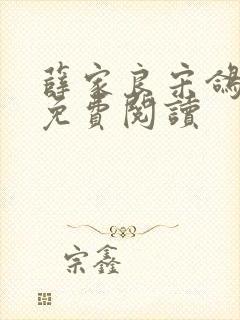 薛家良宋鴿
免費閱讀
宗鑫